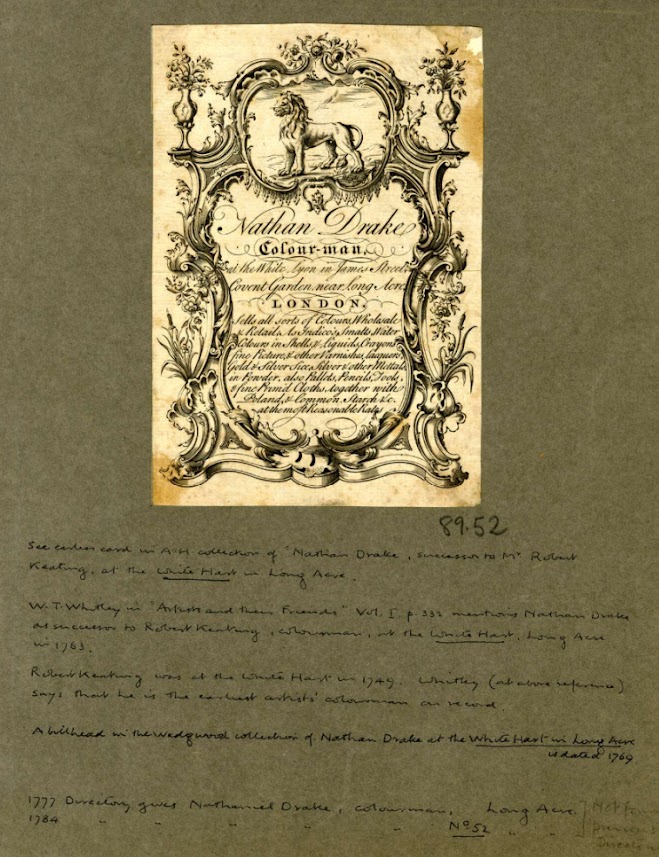 Nathan Drake
Colour-man,
at the White Lyon in James Street
Covent Garden, near Long Acre
LONDON,
Sells all sorts of Colours, Wholesale
& Retail, As Indico's, Smalts, Water
Colours in Shells, & Liquids, Crayons
fine Picture, & other Varnishes, laquers,
Gold & Silver Size, Silver & other Mettals
in Powder, also Pallets, Pencils, Tools,
& fine Prim'd Cloths, together with
Poland, & Common Starch &c.
at the most Reasonable Rates
89.52
See earlier card in A-H collection of "Nathan Drake, successor to Mr Robert
Keating, at the White Hart in Long Acre.
W. T. Whitley in "Artists and their Friends" Vol. I. p. 332 mentions Nathan Drake
as successor to Robert Keating, colourman, at the White Hart, Long Acre
in 1763.
Robert Keating was at the White Hart in 1749. Whitley (at above reference)
says that he is the earliest artists' colourman on record.
A billhead in the Wedgwood collection of Nathan Drake at the White Hart in Long Acre
is dated 1769
1777 Directory gives Nathaniel Drake, colourman, Long Acre.
1784 " " " " No 52 " "
Not
previous